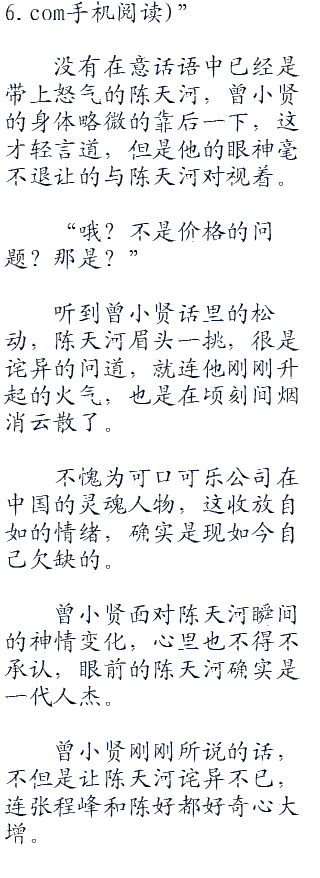 6.com手机阅读)”
没有在意话语中已经是
带上怒气的陈天河，曾小贤
的身体略微的靠后一下，这
才轻言道，但是他的眼神毫
不退让的与陈天河对视着。
“哦？不是价格的问
题？那是？”
听到曾小贤话里的松
动，陈天河眉头一挑，很是
诧异的问道，就连他刚刚升
起的火气，也是在顷刻间烟
消云散了。
不愧为可口可乐公司在
中国的灵魂人物，这收放自
如的情绪，确实是现如今自
己欠缺的。
曾小贤面对陈天河瞬间
的神情变化，心里也不得不
承认，眼前的陈天河确实是
一代人杰。
曾小贤刚刚所说的话，
不但是让陈天河诧异不已，
连张程峰和陈好都好奇心大
增。